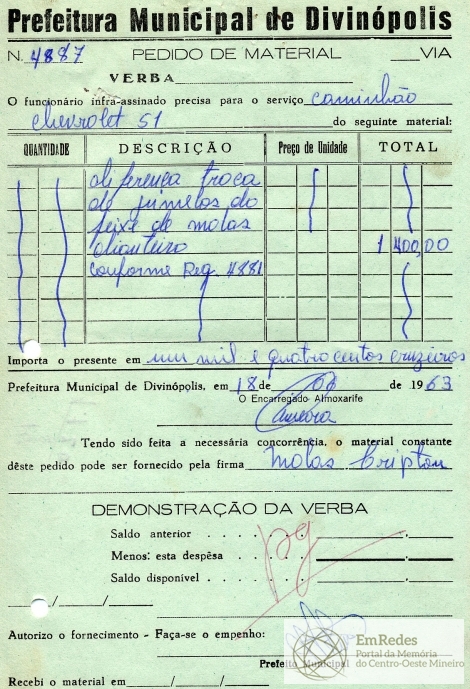 Prefeitura Municipal de Divinópolis
N. 4887 PEDIDO DE MATERIAL ____VIA
VERBA
O funcionário infra-assinado precisa para o serviço caminhão
Chevrolet 51 do seguinte material:
QUANTIDADE DESCRIÇÃO Preço de Unidade TOTAL
diferença troca
de jumelos do
feixe de molas
dianteiro 1 400,00
conforme Reg. 4881
Importa o presente em um mil e quatrocentos cruzeiros
Prefeitura Municipal de Divinópolis, em 18 de de 1963
O Encarregado Almoxarife
Tendo sido feita a necessária concorrência, o material constante
dêste pedido pode ser fornecido pela firma Molas Cripton
DEMONSTRAÇÃO DA VERBA
Saldo anterior . . . . .
Menos: esta despêsa . . . . .
Saldo disponivel . . . . .
pg
___/___/___
Autorizo o fornecimento - Faça-se o empenho:
Prefeito Municipal
Recebi o material em ___/___/___
EmRedes
Portal da Memória
do Centro-Oeste Mineiro